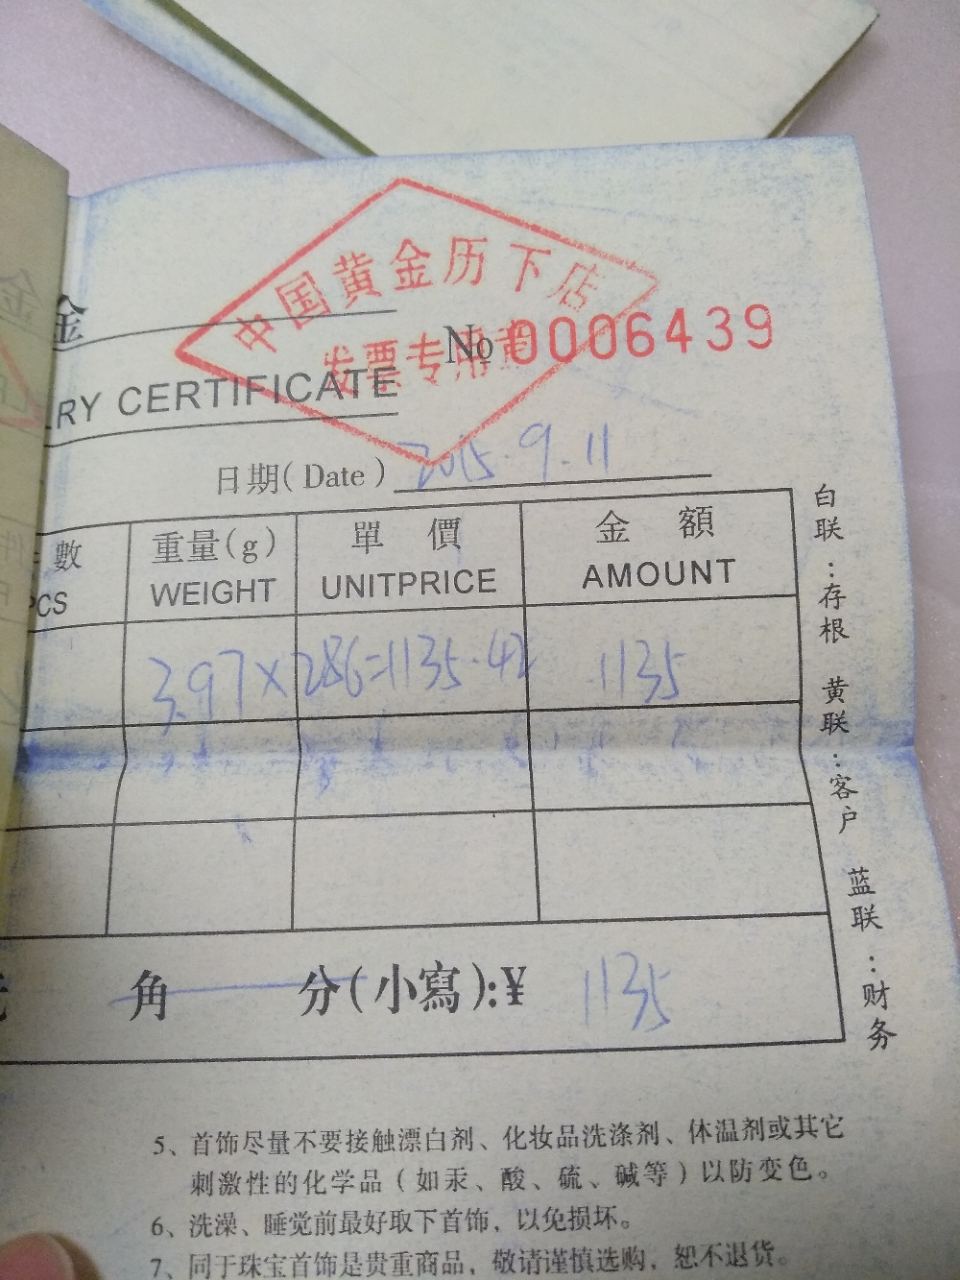 中国黄金历下店
发票专用章
金
No 0006439
RY CERTIFICATE
日期(Date) 2015.9.11
數 重量(g) 單價 金額
PCS WEIGHT UNITPRICE AMOUNT
3.97×286=1135.42 1135
角 分(小寫):¥ 1135
白联:存根 黄联:客户 蓝联:财务
5、首饰尽量不要接触漂白剂、化妆品洗涤剂、体温剂或其它
刺激性的化学品(如汞、酸、硫、碱等)以防变色。
6、洗澡、睡觉前最好取下首饰，以免损坏。
7、同于珠宝首饰是贵重商品，敬请谨慎选购，恕不退货。